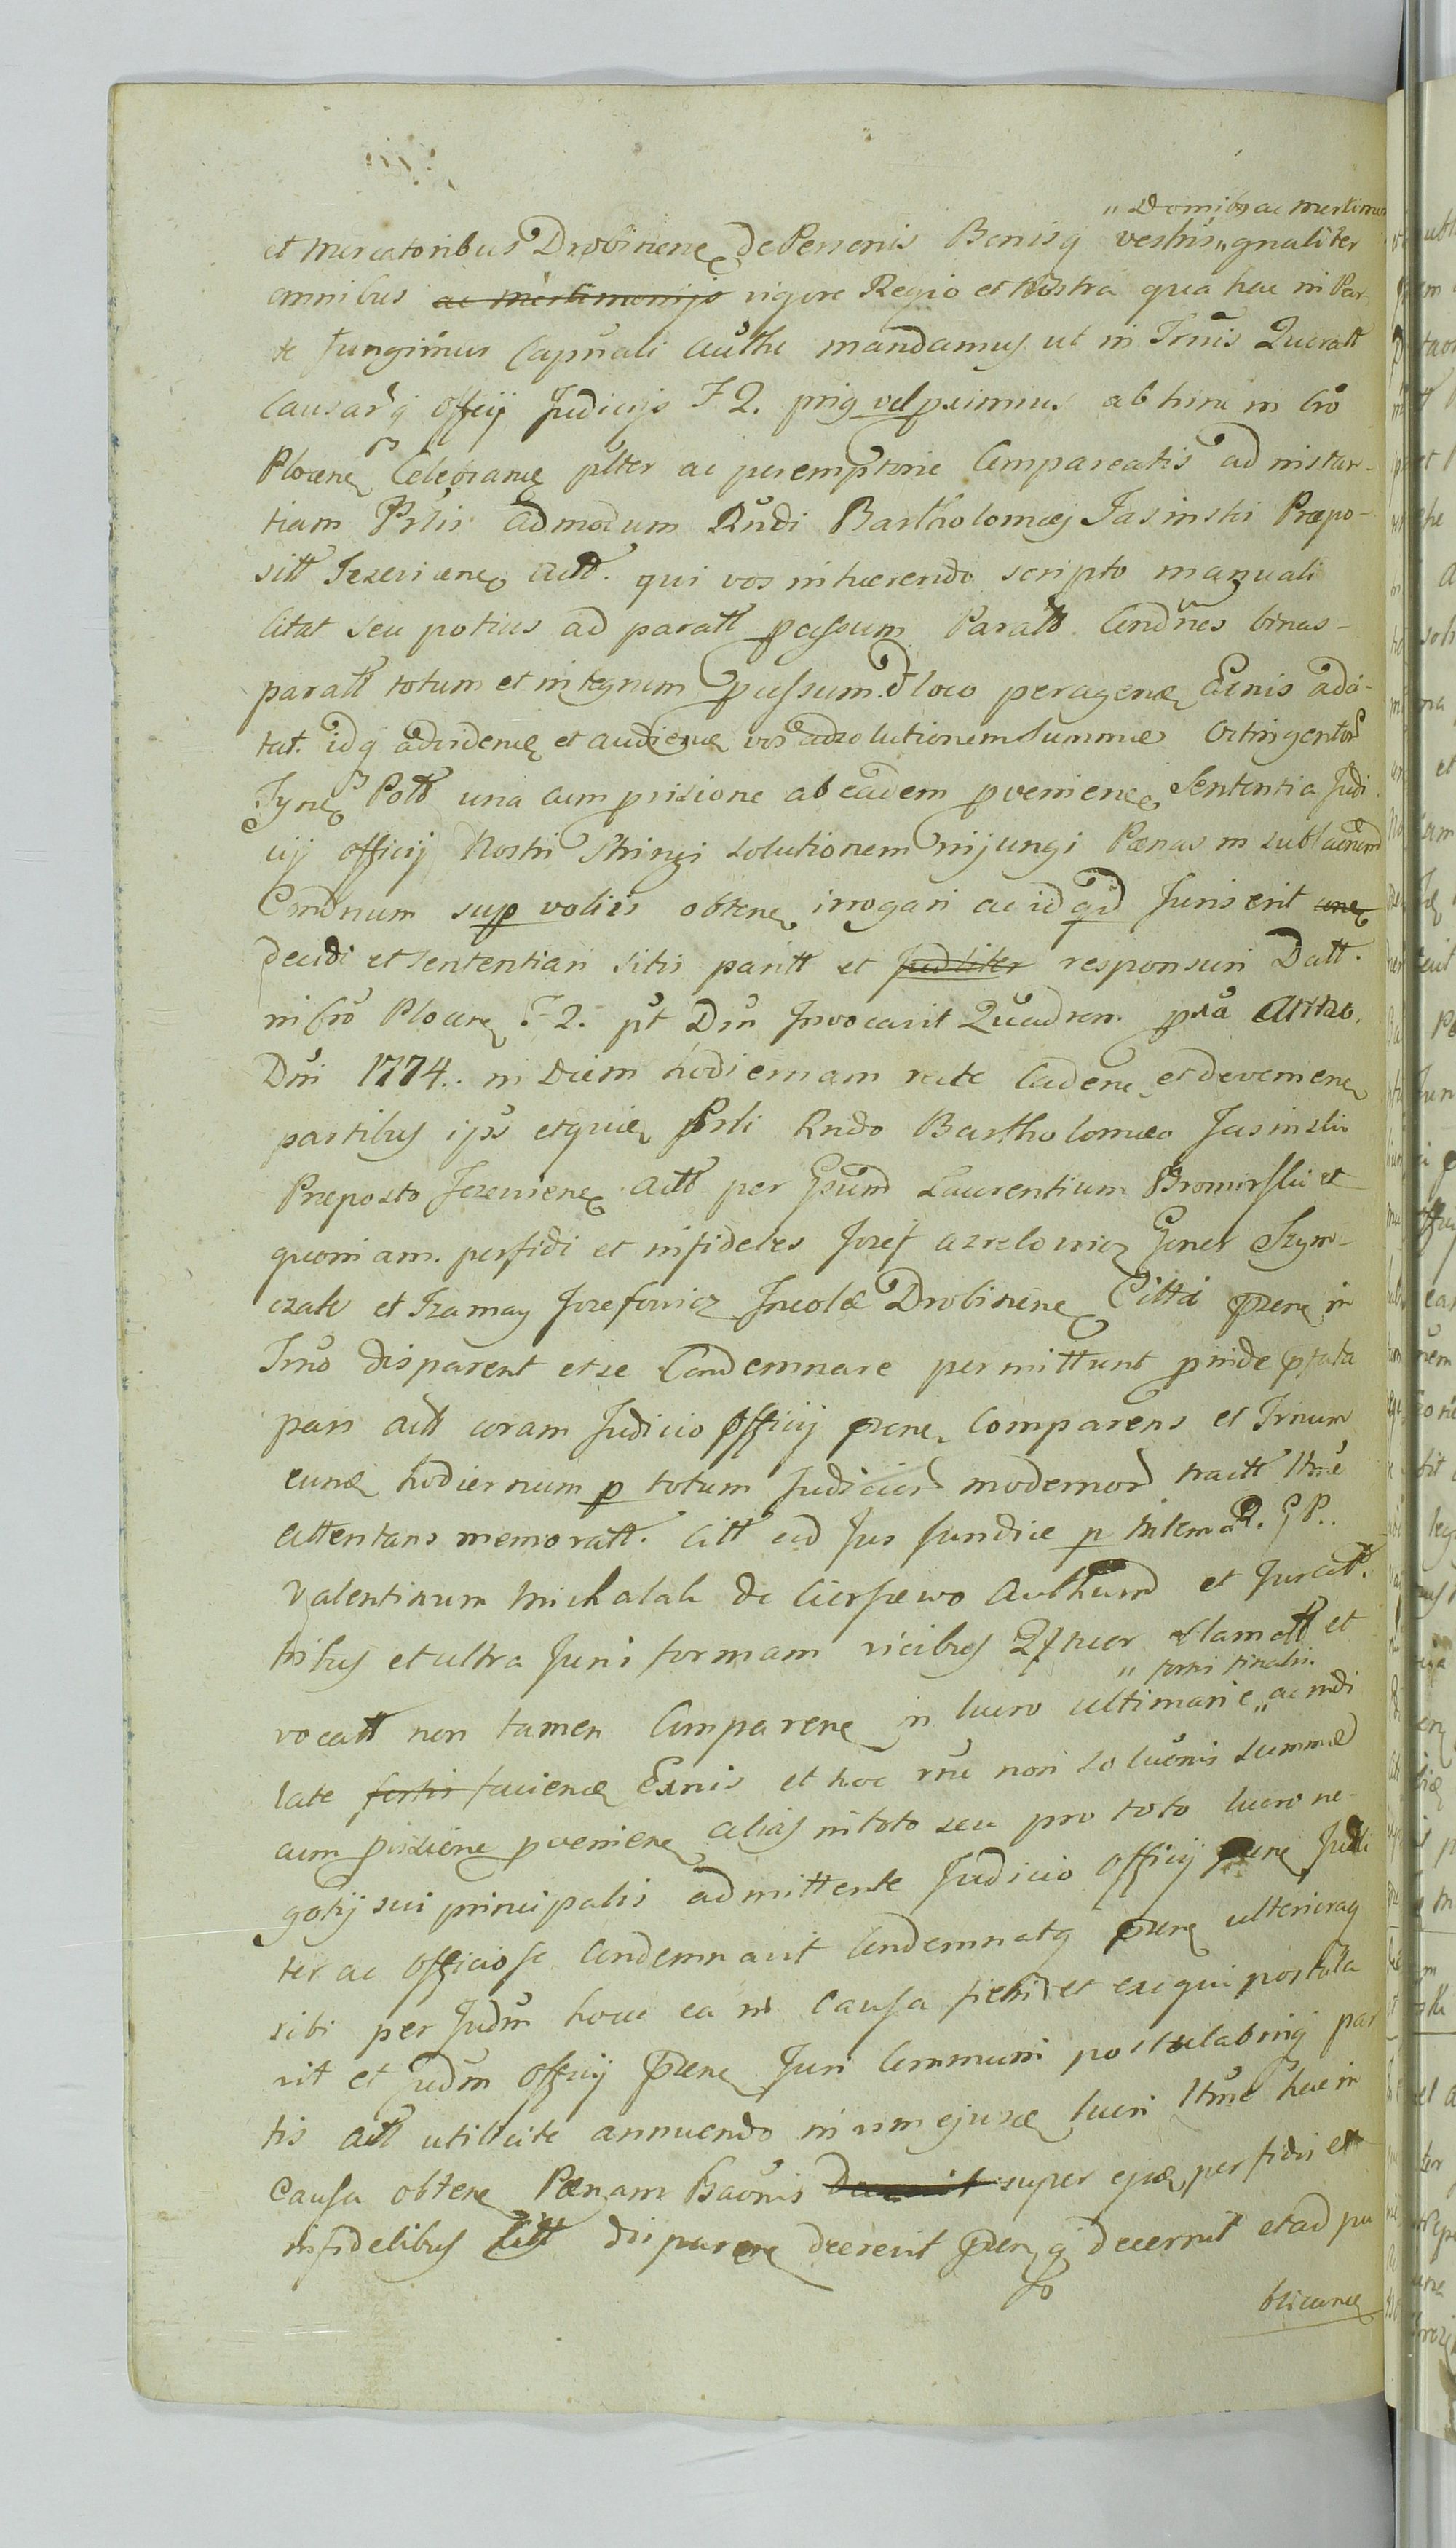 „ Domibq ac mertimon
et Mercatoribus Drobinenę de Personis Bonisq vestris „ gnaliter
omnibus ac mertimonijs vigore Regio et Nostra qua hac in Par-
te fungimur Capnali Authe mandamus ut in Trnis Querall
Causarq officij Judicijs F2. prig vel pximius ab hinc in Cro
Plocenę Celebranę plter ac peremptorie Compareatis ad instan-
tiam Prlis Admodum Rndi Bartholomęj Jasinski Præpo-
sitt Jezeviænę Actt. qui vos inhærendo scripto manuali
Citat seu potius ad paratt passum Paratt Condnes binas
paratt totum et integrum passum d loco peragenæ Exnis ada-
tat. idq adwidenę et audienę vos ad solutionem Summæ Octingentor
Tynę Poll una cum prisione ab eadem pvenienę Sententia Judi
cij officij Nostri Stringi solutionem injungi Pænas in subsacnem
Condnum sup volijs obtenę irrogari ac id qd Juris erit unę
decidi et sententiari sitis paritt et judliter responsuri Datt.
in Cro Plocenę F2. pt Dni Invocavit Quadrem pxa Anno
Dni 1774. in Diem hodiernam recte Cadenę et devenienę
partibus ipss etquię Prli Rndo Bartholomæo Jasinski
Præposto Jezevienę Actt per Gsum Laurentium Bromirski et
quoniam perfidi et infideles Jozef azrelowicz Joner Szym-
czak et Szamay Jozefowicz Incolæ Drobinenę Citti pzenę in
Trno disparent et se Condemnare permittunt pinde pfata
pars actt coram Judicio officij pzenę Comparens et Trnum
eunæ hodiernum p totum Judicior modernor tractt Itme
attentans memoratt. Citt ad Jus fundice p Mtem R. G P.
Valentinum Michalak de Cierszewo Authum et Jurat.
tritus et ultra Juris formam vicibus 2ftuor Clamatt et
„ fortis finalis
vocatt non tamen Comparenę in lucro ultimarie „ ac indi
late fortis facienæ Exnis et hoc rne non soluonis Summæ
cum prisione pvenienę alias in toto seu pro toto lucro ne-
gotij sui principalis admittente Judicio officij pzenę Judli
ter ac officiose Condemnavit Condemnatq pzenę ulterioraq
sibi per Judm hocce ea in Causa fieri et exequi postula
vit et Judm officij Pzenę Juri Communi postulabnią par
tis Actt utilitate annuendo in vim ejusæ lucri Itme hac in
Causa obtenę Pænam Baonis Decrevit super ejusæ perfidis et
infidelibus Citt disparenę decrevit Pzenq decernit et ad pu
blicanę